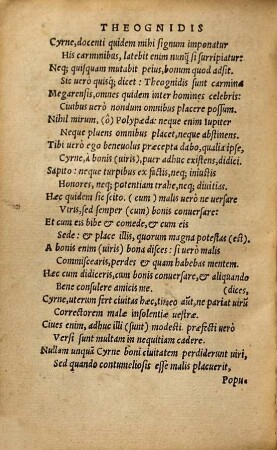 THEOGNIDIS
Cyrne, docenti quidem mihi signum imponatur
His carminibus, latebit enim nunq̃ si surripiatur:
Neq; quisquam mutabit peius, bonum quod adsit.
Sic uerò quisq; dicet: Theognidis sunt carmina
Megarensis, omnes quidem inter homines celebris:
Ciuibus uerò nondum omnibus placere possum.
Nihil mirum, (ô) Polypæda: neque enim Iupiter
Neque pluens omnibus placet, neque abstinens.
Tibi uerò ego beneuolus præcepta dabo, qualia ipse,
Cyrne, à bonis (uiris), puer adhuc existens, didici.
Sapito: neque turpibus ex factis, neq; iniustis
Honores, neq; potentiam trahe, neq; diuitias.
Hæc quidem sic scito. (cum) malis uerò ne uersare
Viris, sed semper (cum) bonis conuersare:
Et cum eis bibe & comede, & cum eis
Sede: & place illis, quorum magna potestas (est).
A bonis enim (uiris) bona disces: si uerò malis
Commiscearis, perdes & quam habebas mentem.
Hæc cum didiceris, cum bonis conuersare, & aliquando
Bene consulere amicis me (dices,
Cyrne, uterum fert ciuitas hæc, timeo aũt, ne pariat uirũ
Correctorem malæ insolentiæ uestræ.
Ciues enim, adhuc illi (sunt) modesti præfecti uerò
Versi sunt multam in nequitiam cadere.
Nullam unquã Cyrne boni ciuitatem perdiderunt uiri,
Sed quando contumeliosis esse malis placuerit,
Popu-